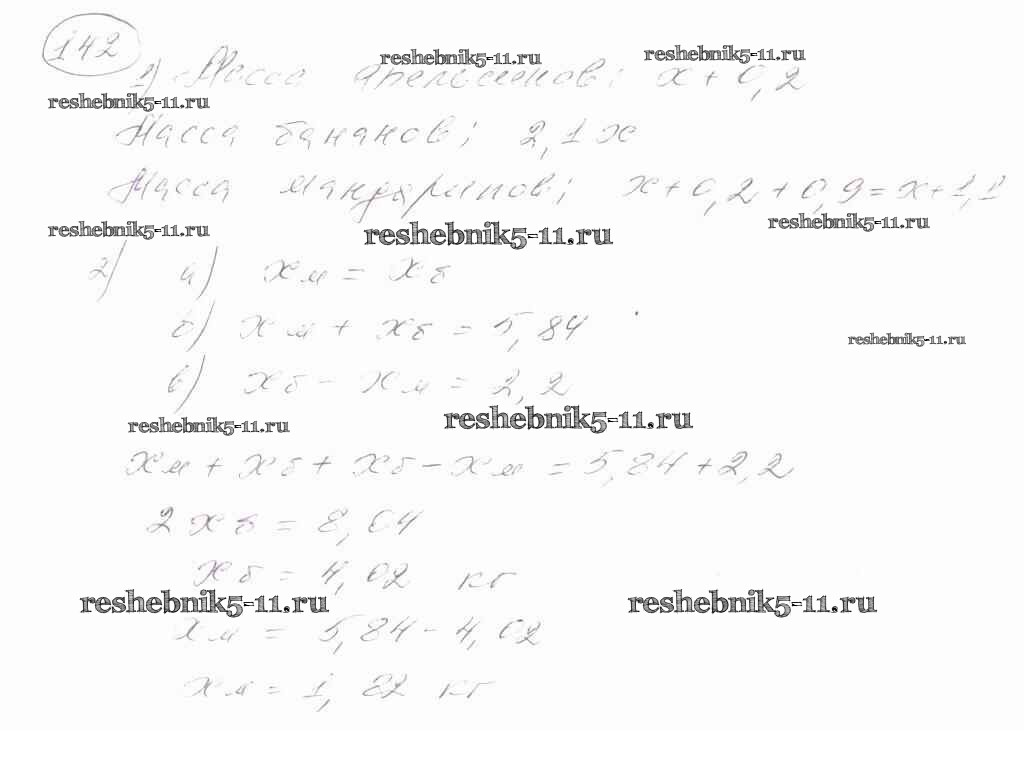 142
reshebnik5-11.ru reshebnik5-11.ru
1) Масса апельсинов: х + 0,2
reshebnik5-11.ru
Масса бананов: 2,1х
Масса мандаринов: х + 0,2 + 0,9 = х + 1,1
reshebnik5-11.ru reshebnik5-11.ru reshebnik5-11.ru
2) а) хм = хб
б) хм + хб = 5,84
reshebnik5-11.ru
в) хб - хм = 2,2
reshebnik5-11.ru reshebnik5-11.ru
хм + хб + хб - хм = 5,84 + 2,2
2хб = 8,04
хб = 4,02 кг
reshebnik5-11.ru reshebnik5-11.ru
хм = 5,84 - 4,02
хм = 1,82 кг